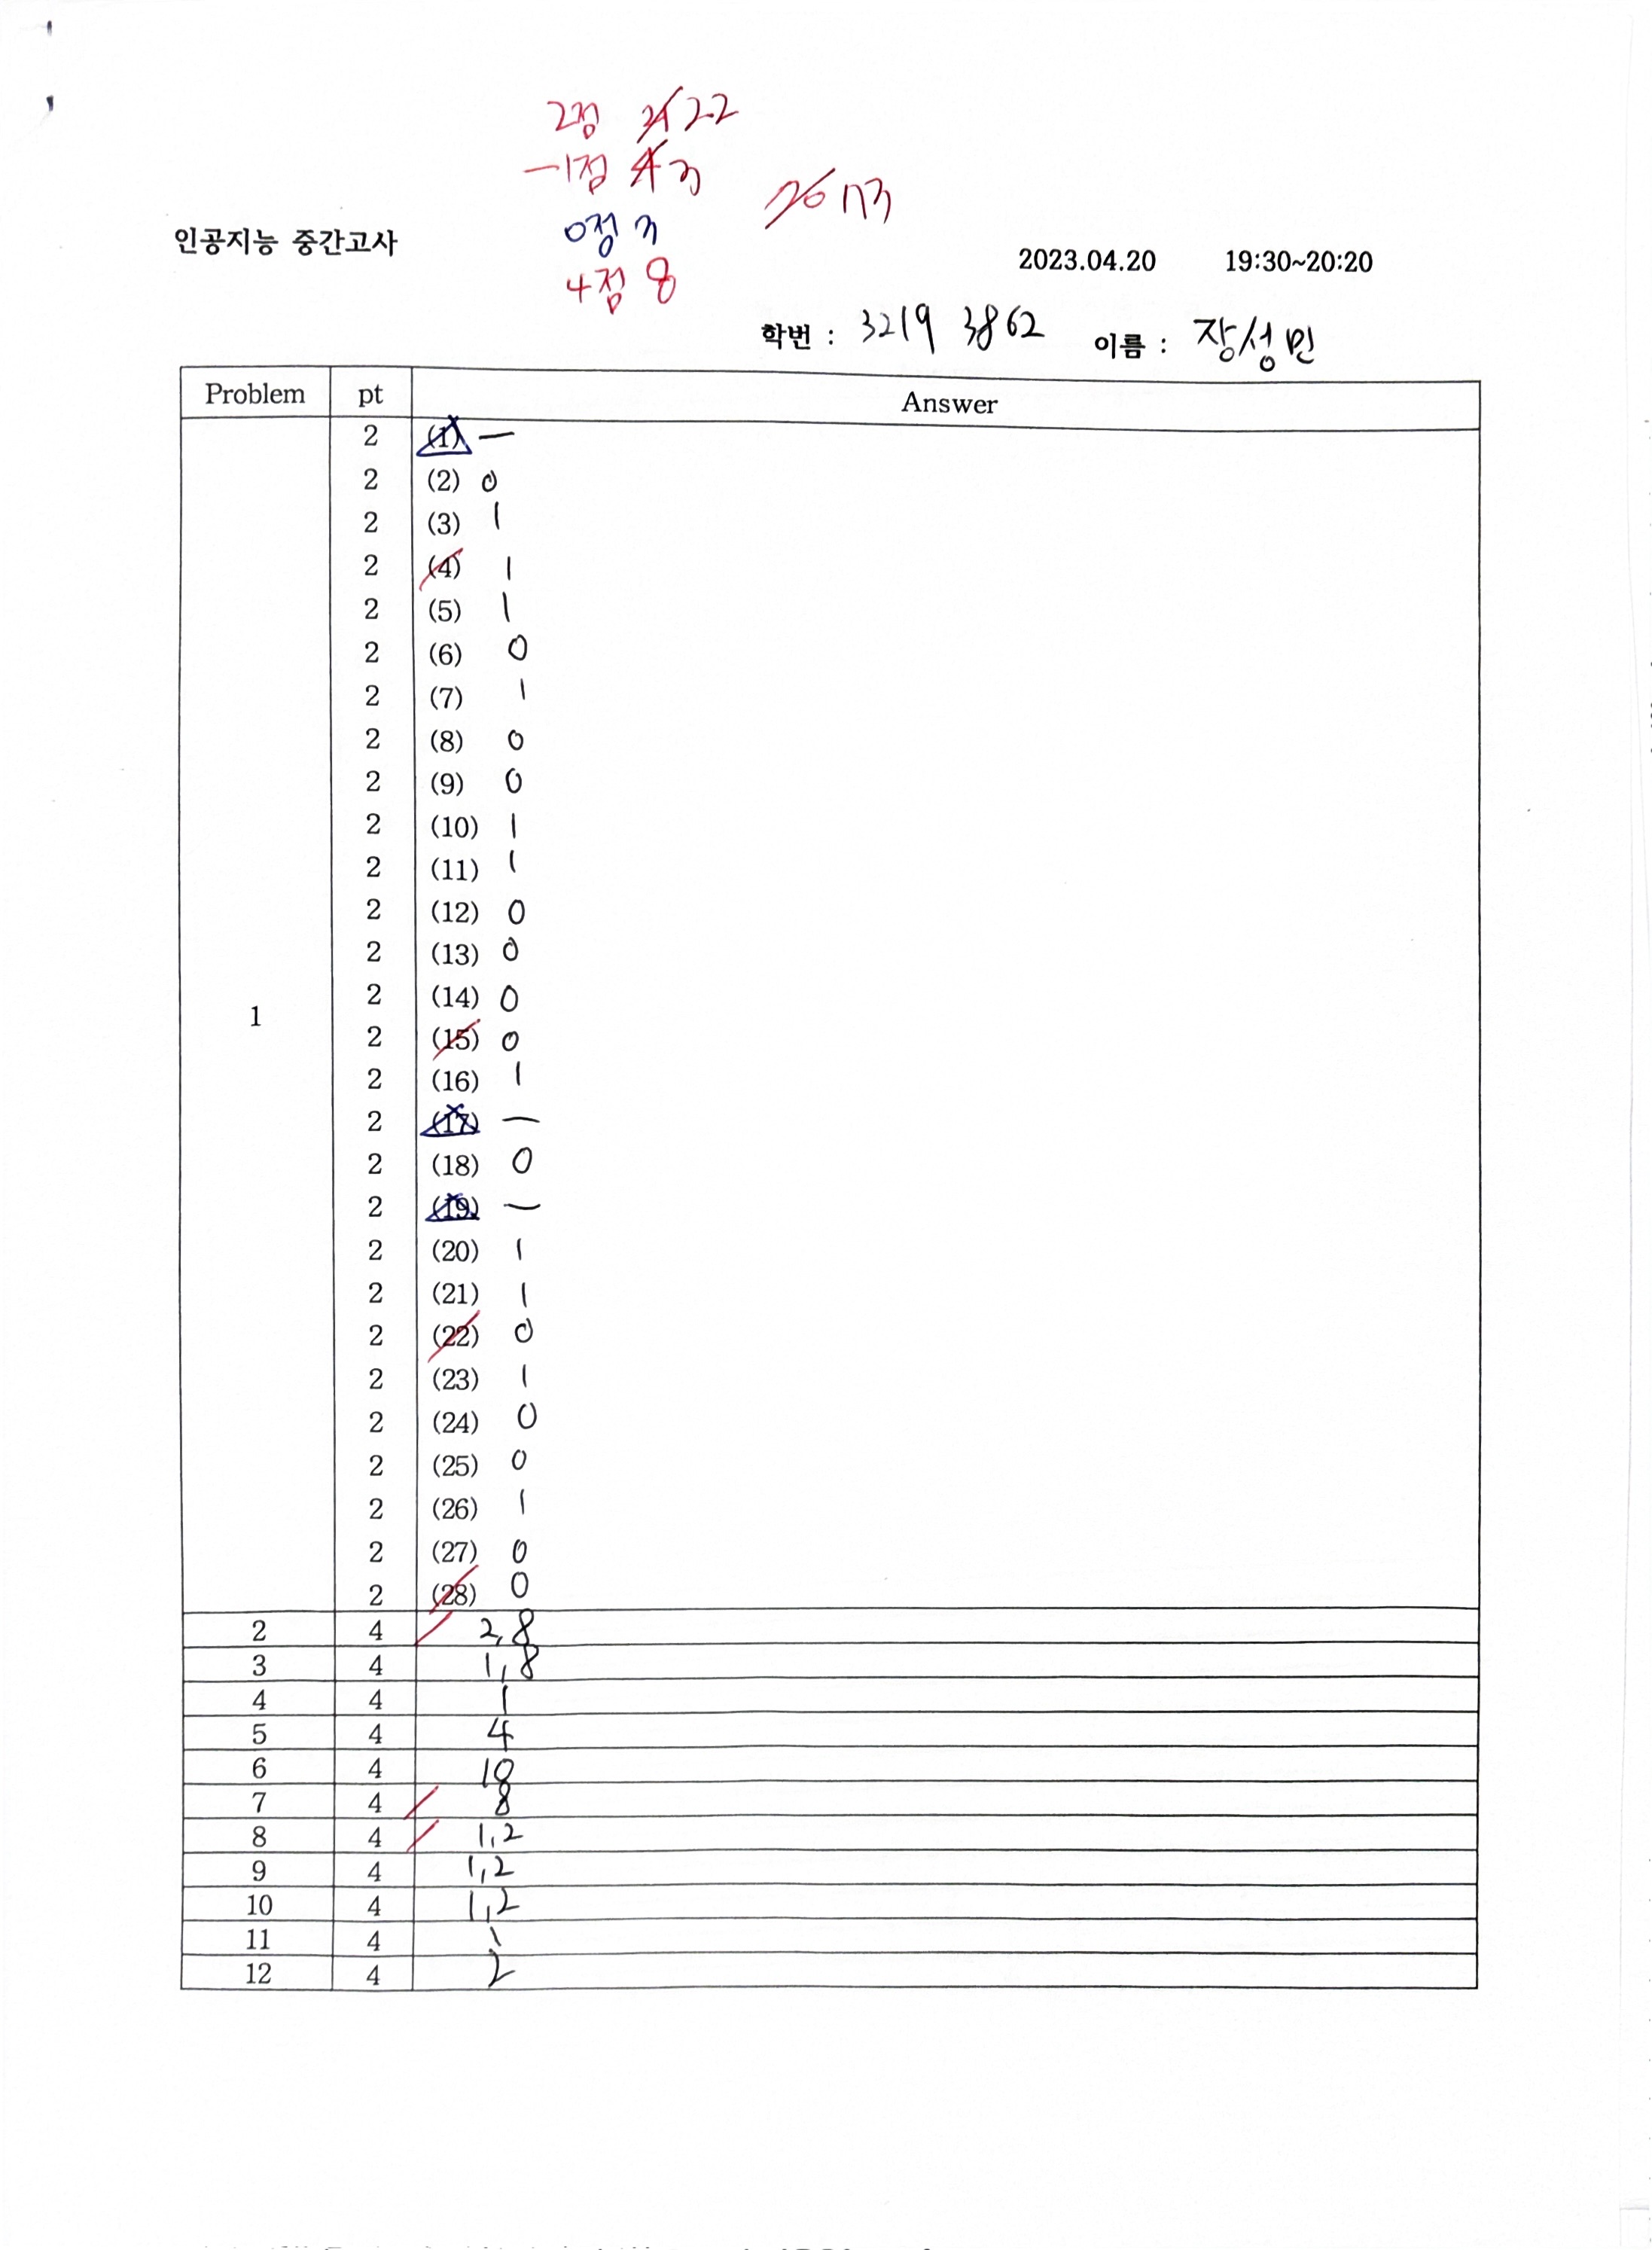 2점 22
-1점 3
73
0점 3
인공지능 중간고사
4점 8
2023.04.20 19:30~20:20
학번 : 3219 3862 이름 : 장성민
Problem pt Answer
1
2 (1) —
2 (2) 0
2 (3) 1
2 (4) 1
2 (5) 1
2 (6) 0
2 (7) 1
2 (8) 0
2 (9) 0
2 (10) 1
2 (11) 1
2 (12) 0
2 (13) 0
2 (14) 0
2 (15) 0
2 (16) 1
2 (17) —
2 (18) 0
2 (19) —
2 (20) 1
2 (21) 1
2 (22) 0
2 (23) 1
2 (24) 0
2 (25) 0
2 (26) 1
2 (27) 0
2 (28) 0
2 4 2,8
3 4 1,8
4 4 1
5 4 4
6 4 18
7 4 8
8 4 1,2
9 4 1,2
10 4 1,2
11 4 1
12 4 2